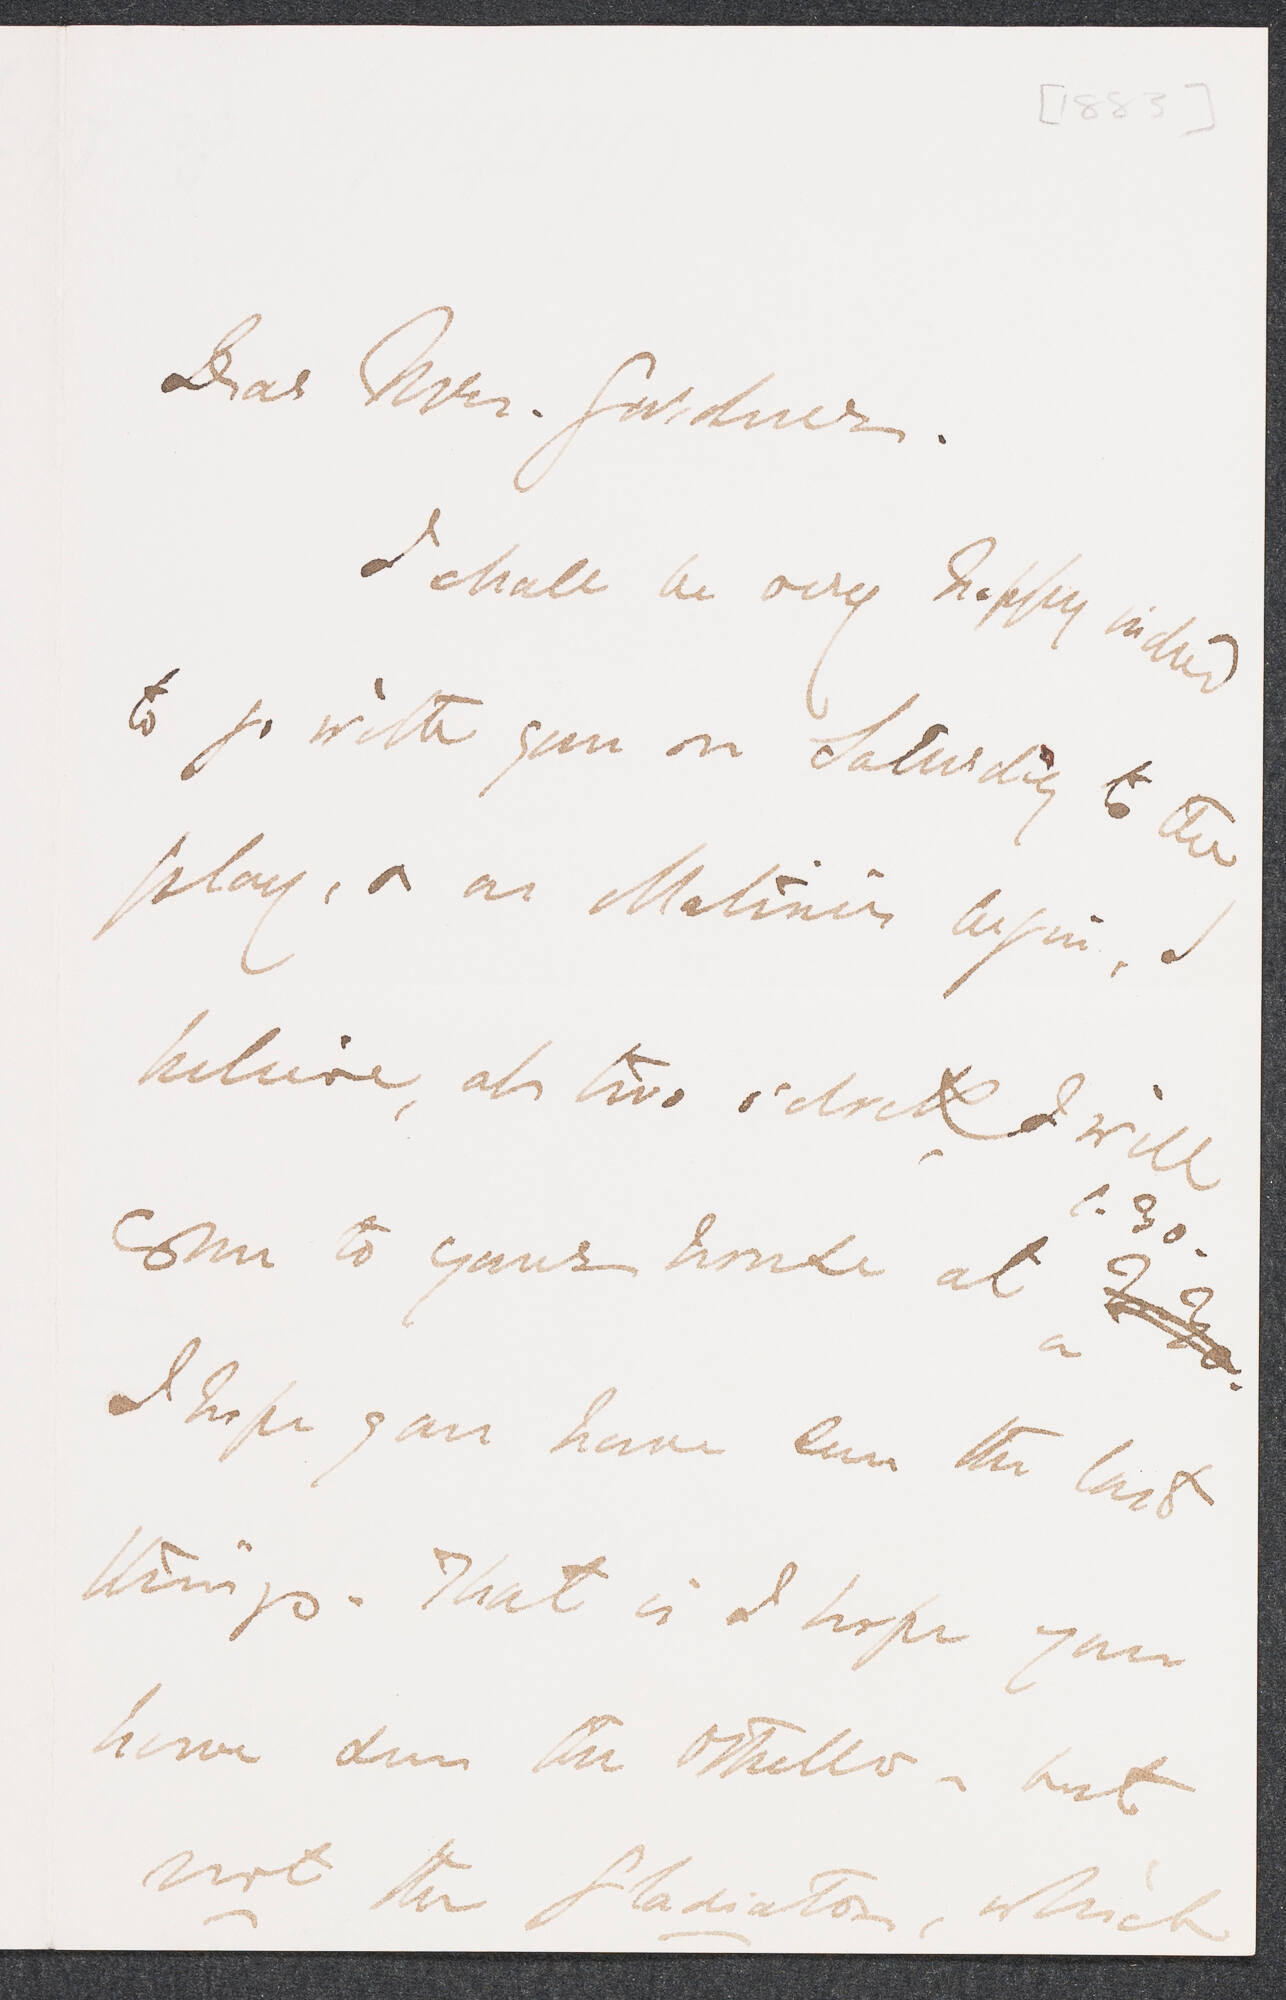 [1883]
Dear Mrs. Gardner.
I shall be very happy indeed
to go with you on Saturday to the
play, & as Matinées begin, I
believe, at two o'clock, I will
come to your house at 1.30.
I hope you have seen the last
things. That is I hope you
have seen the Othello - but
not the Gladiator, which